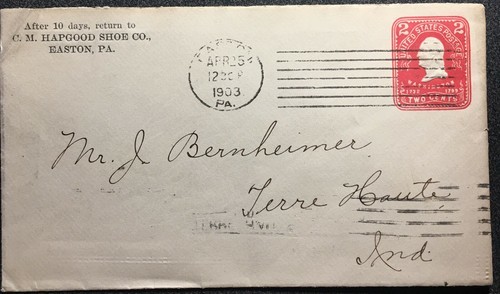 After 10 days, return to
C. M. HAPGOOD SHOE CO.,
EASTON, PA.
EASTON
APR 25
1903
PA.
2 2
UNITED STATES POSTAGE
TWO CENTS
Mr. J. Bernheimer
Terre Haute
Ind.